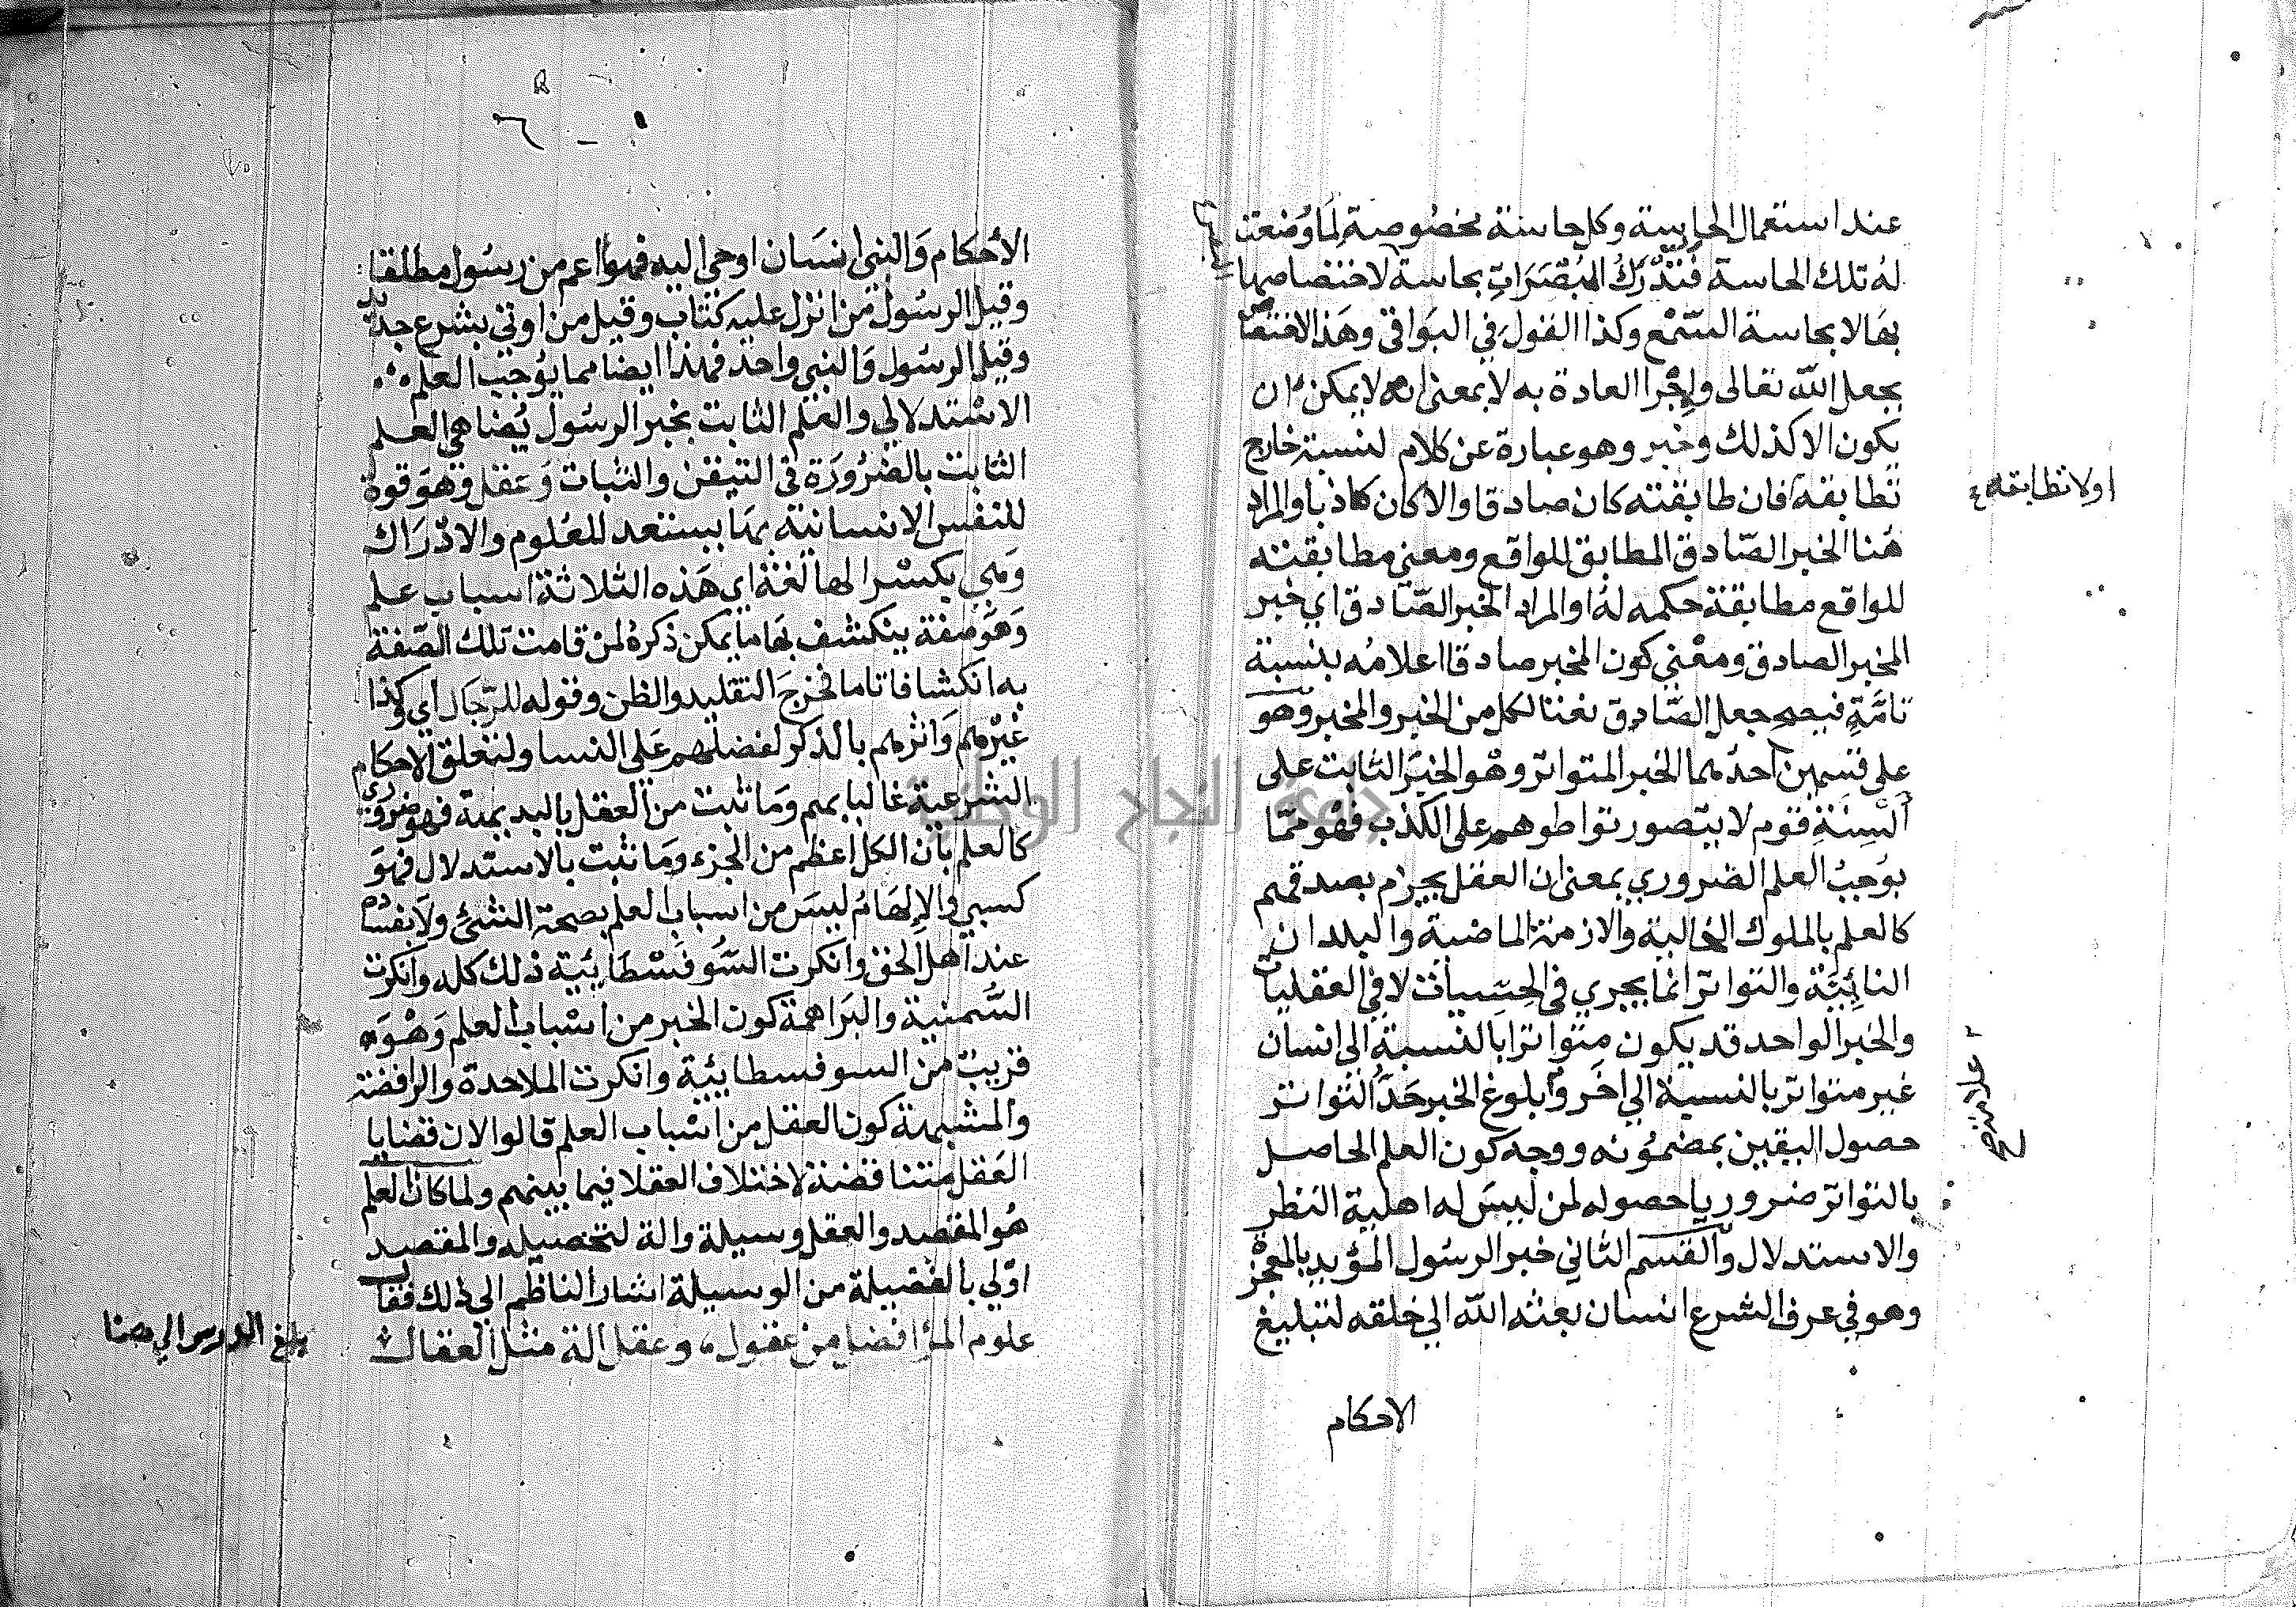 عند استعمال الحاسة وكل حاسة مخصوصة لما وضعت
له تلك الحاسة فتدرك المبصرات بحاسة لاختصاصها
بها لا بحاسة السمع وكذا القول في البواقي وهذا الاختصاص
بجعل الله تعالى وإجرا العادة به لا بمعنى انه لا يمكن ان
يكون الا كذلك وخبر وهو عبارة عن كلام لنسبته خارج
تطابقه فان طابقته كان صادقا والا كان كاذبا والمراد
اولا تطابقه
هنا الخبر الصادق المطابق للواقع ومعنى مطابقته
للواقع مطابقة حكمه له او المراد الخبر الصادق اي خبر
المخبر الصادق ومعنى كون المخبر صادقا اعلامه بنسبة
تامة فيصح جعل الصادق نعتا لكل من الخبر والمخبر وهو
على قسمين احدهما الخبر المتواتر وهو الخبر الثابت على
ألسنة قوم لا يتصور تواطوهم على الكذب فهو مما
يوجب العلم الضروري بمعنى ان العقل يجزم بصدقهم
كالعلم بالملوك الخالية والازمنة الماضية والبلدان
النائية والتواتر انما يجري في الحسيات لا في العقليات
والخبر الواحد قد يكون متواترا بالنسبة الى انسان
غير متواتر بالنسبة الى اخر وبلوغ الخبر حد التواتر
علامته
حصول اليقين بمضمونه ووجه كون العلم الحاصل
بالتواتر ضروريا حصوله لمن ليس له اهلية النظر
والاستدلال والقسم الثاني خبر الرسول المؤيد بالمعجز
وهو في عرف الشرع انسان بعثه الله الى خلقه لتبليغ
الاحكام
الأحكام والنبي انسان اوحي اليه فهو اعم من رسول مطلقا
وقيل الرسول من انزل عليه كتاب وقيل من اوتي بشرع جديد
وقيل الرسول والنبي واحد فهذا ايضا مما يوجب العلم
الاستدلالي والعلم الثابت بخبر الرسول يضاهي العلم
الثابت بالضرورة في التيقن والثبات وعقل وهو قوة
للنفس الانسانية بها يستعد للعلوم والادراك
وهي بكسر الها لغة اي هذه الثلاثة اسباب علم
وهو صفة ينكشف بها ما يمكن ذكره لمن قامت تلك الصفة
به انكشافا تاما فخرج التقليد والظن وقوله للرجال اي وكذا
غيرهم وآثرهم بالذكر لفضلهم على النسا ولتعلق الاحكام
الشرعية غالبا بهم وما ثبت من العقل بالبديهة فهو ضروري
كالعلم بأن الكل اعظم من الجزء وما ثبت بالاستدلال فهو
كسبي والإلهام ليس من اسباب العلم بصحة الشئ ولا بفساده
عند اهل الحق وانكرت السوفسطائية ذلك كله وانكرت
السمنية والبراهمة كون الخبر من اسباب العلم وهو
قريب من السوفسطائية وانكرت الملاحدة والرافضة
والمشبهة كون العقل من اسباب العلم قالوا لان قضايا
العقل متناقضة لاختلاف العقلا فيما بينهم ولما كان العلم
هو المقصد والعقل وسيلة والة لتحصيله والمقصد
اولي بالفضيلة من الوسيلة اشار الناظم الى ذلك فقال
علوم المرء افضل من عقول، وعقل الة مثل العقال
بلغ الدرس الي هنا
جامعة النجاح الوطنية